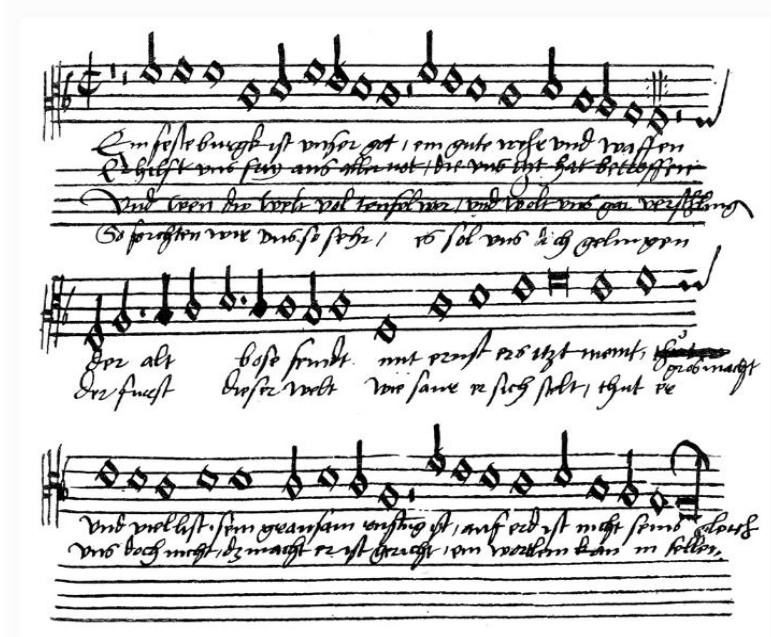 Ein feste burgk ist unser got, ein gute wehr und waffen
Er hilft uns frey aus aller not, die uns itzt hat betroffen
Und wen die welt vol teufel wer, und wolt uns gar verschling
So forchten wir uns so sehr, es sol uns doch gelingen
der alt bose feindt mit ernst ers itzt meint,
gros macht
der furst dieser welt wie saur er sich stelt, thut er
und viel list, sein grausam rustug ist, auf erd ist nicht seins gleich
uns doch nicht, dz macht er ist gericht, ein wortlein kan in fellen,